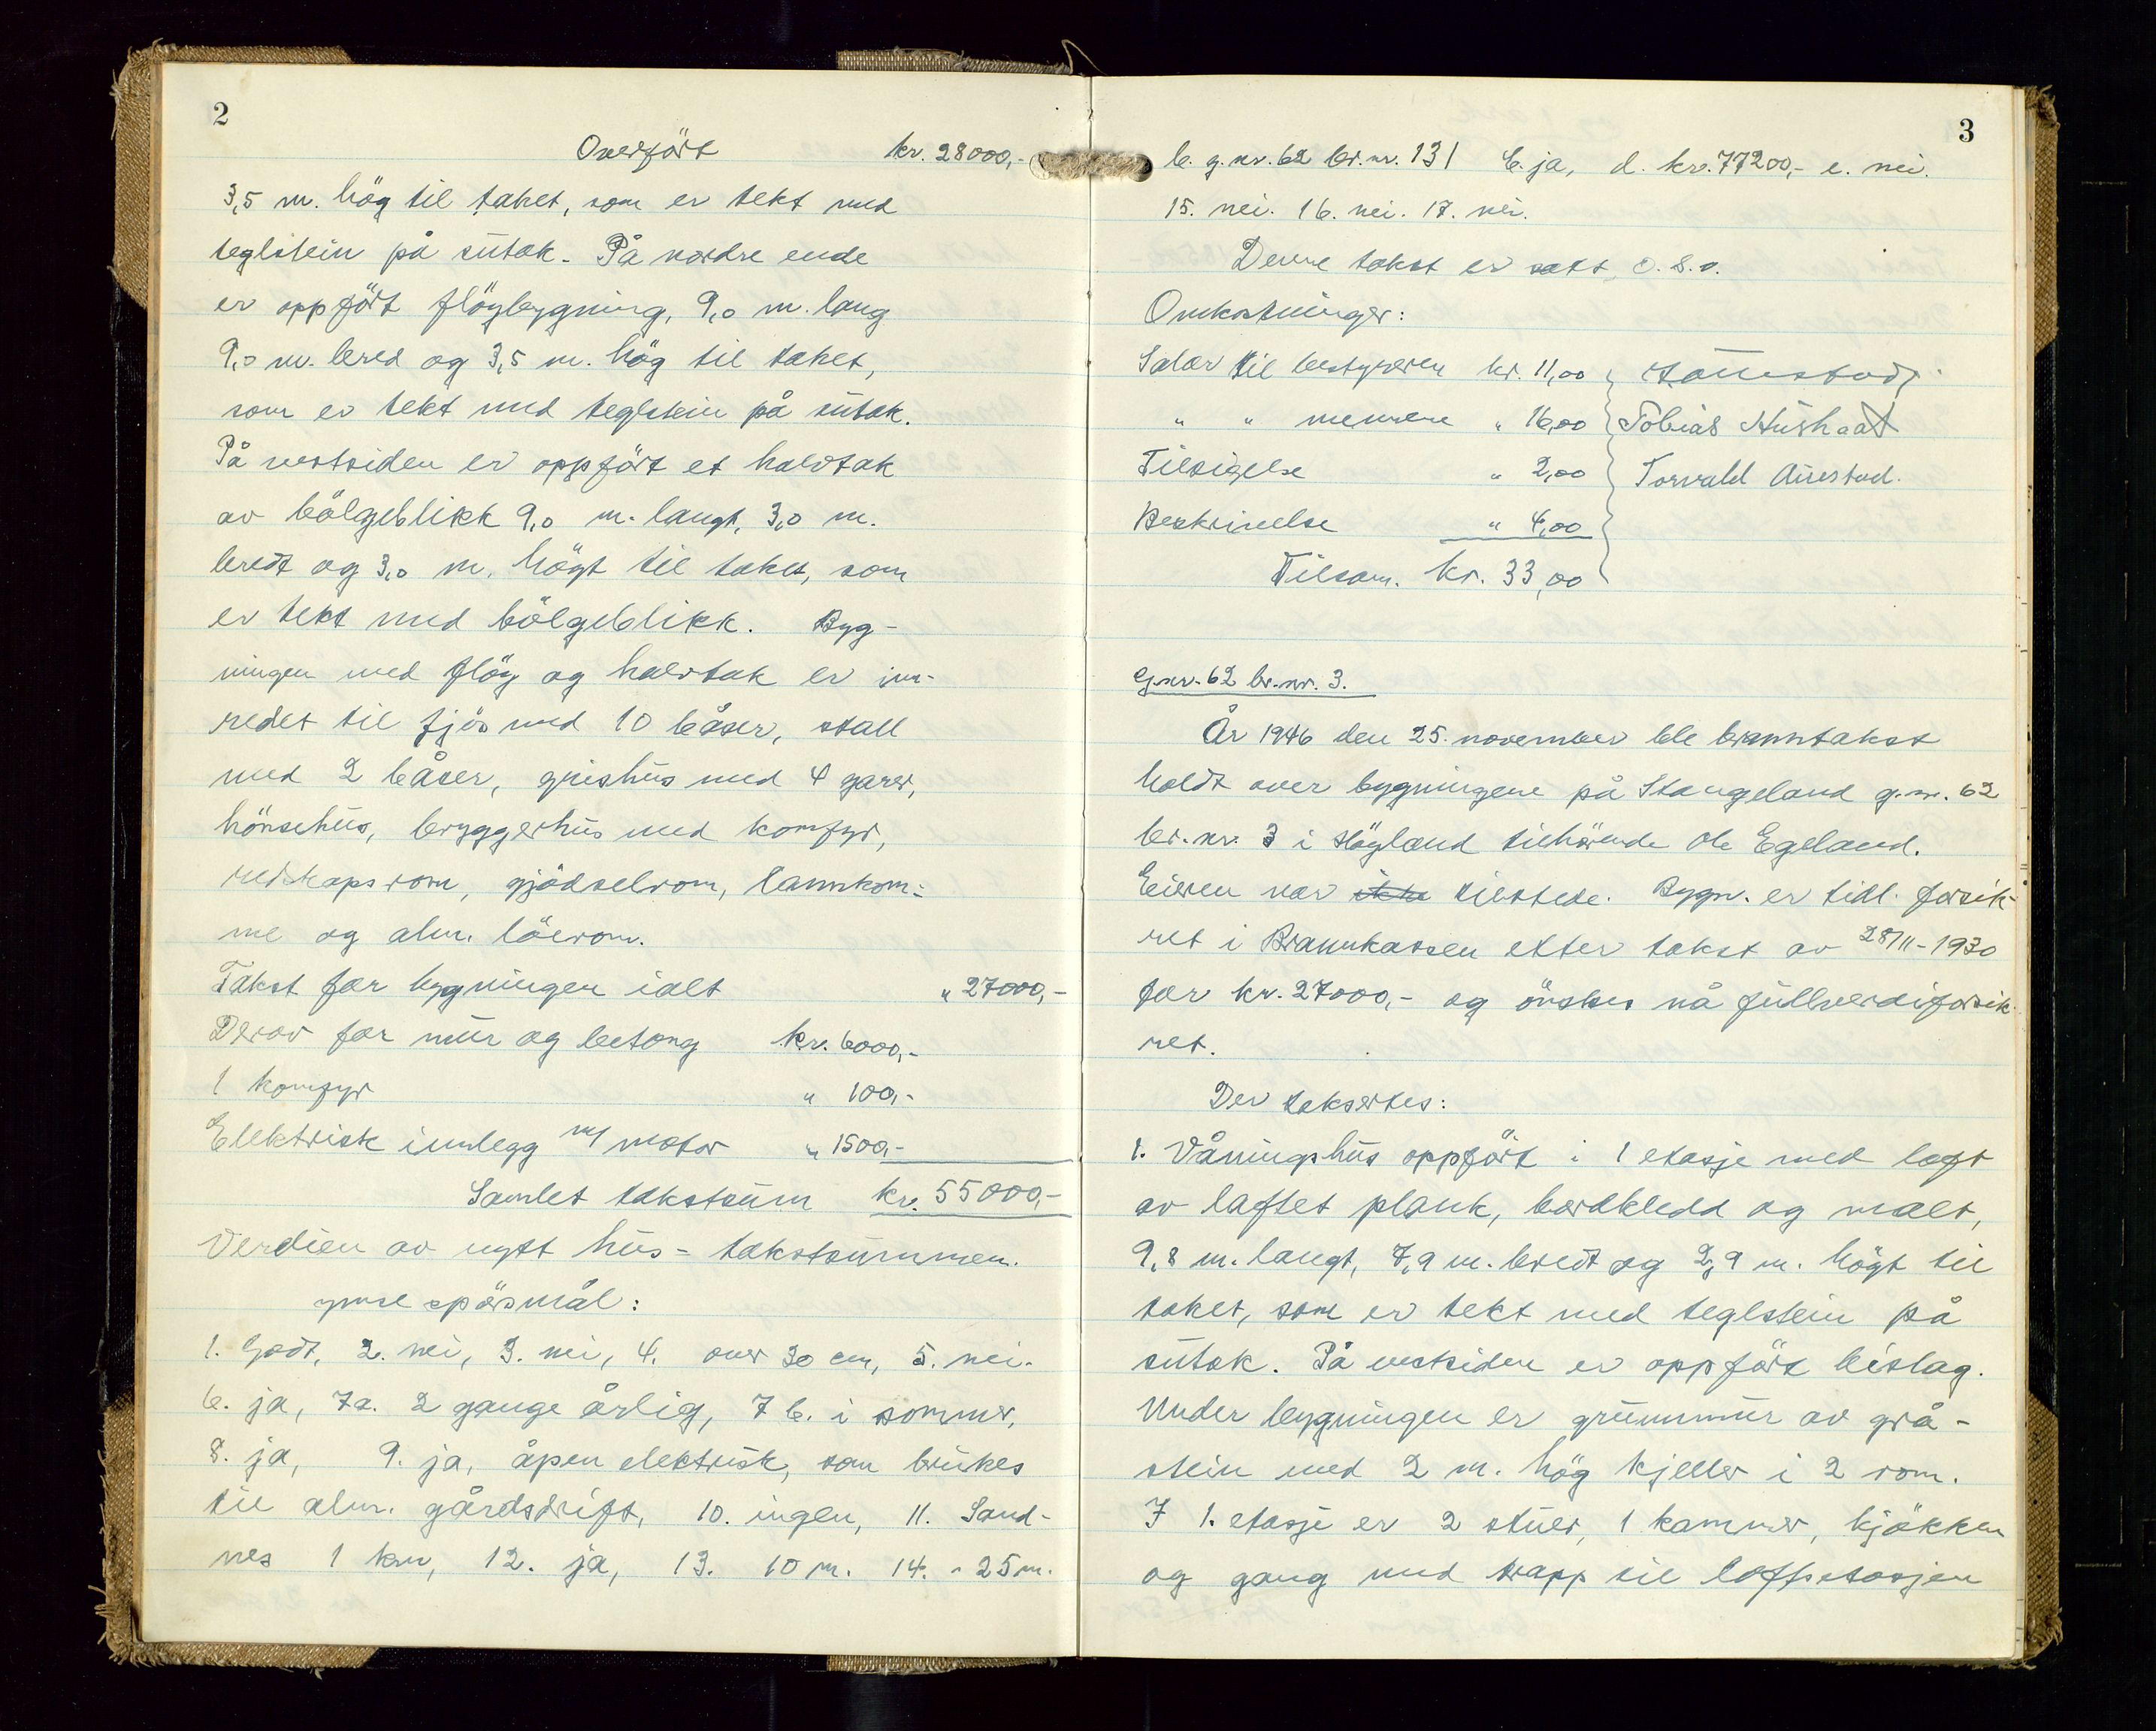 2
Overfört kr. 28000,-
3,5 m. hög til taket, som er tekt med
teglstein på sutak. På nordre ende
er oppfört flöybygning, 9,0 m. lang
9,0 m. bred og 3,5 m. hög til taket,
som er tekt med teglstein på sutak.
På vestsiden er oppfört et halvtak
av bölgeblikk 9,0 m. langt, 3,0 m.
bredt og 3,0 m. högt til taket, som
er tekt med bölgeblikk. Byg-
ningen med flöy og halvtak er inn-
redet til fjös med 10 båser, stall
med 2 båser, grishus med 4 garer,
hönsehus, bryggerhus med komfyr,
redskapsrom, gjödselrom, lannkom-
me og alm. löerom.
Takst for bygningen ialt " 27000,-
Derav for mur og betong kr. 6000,-
1 komfyr " 100,-
Elektrisk innlegg m/ motor " 1500,-
Samlet takstsum kr. 55000,-
Verdien av nytt hus = takstsummen.
ymse spörsmål:
1. Godt, 2. nei, 3. nei, 4. over 30 cm, 5. nei.
6. ja, 7a. 2 gange årlig, 7 b. i sommer,
8. ja, 9. ja, åpen elektrisk, som brukes
til alm. gårdsdrift, 10. ingen, 11. Sand-
nes 1 km, 12. ja, 13. 10 m. 14. " 25 m.
3
b. g.nr. 62 br.nr. 131 c. ja, d. kr. 77200,- e. nei.
15. nei. 16. nei. 17. nei.
Denne takst er satt o.s.v.
Omkostninger:
Salær til bestyreren kr. 11,00
" " mennene " 16,00 Tobias Hushaat
Tilsigelse " 2,00 Torvald Auestad.
Beskrivelse " 4,00
Tilsam. kr. 33,00
G.nr. 62 br.nr. 3.
År 1946 den 25. november ble branntakst
holdt over bygningene på Stangeland g.nr. 62
br.nr. 3 i Högland tilhörende Ole Egeland.
Eieren var ikke tilstede. Bygn. er tidl. forsik-
ret i Brannkassen etter takst av 28/11-1930
for kr. 27000,- og önskes nå fullverdiforsik-
ret.
Der taksertes:
1. Våningshus oppfört i 1 etasje med loft
av laftet plank, bordkledd og malt,
9,8 m. langt, 7,9 m. bredt og 2,9 m. högt til
taket, som er tekt med teglstein på
sutak. På vestsiden er oppfört bislag.
Under bygningen er grunnmur av grå-
stein med 2 m. hög kjeller i 2 rom.
I 1. etasje er 2 stuer, 1 kammer, kjökken
og gang med trapp til loftsetasjen